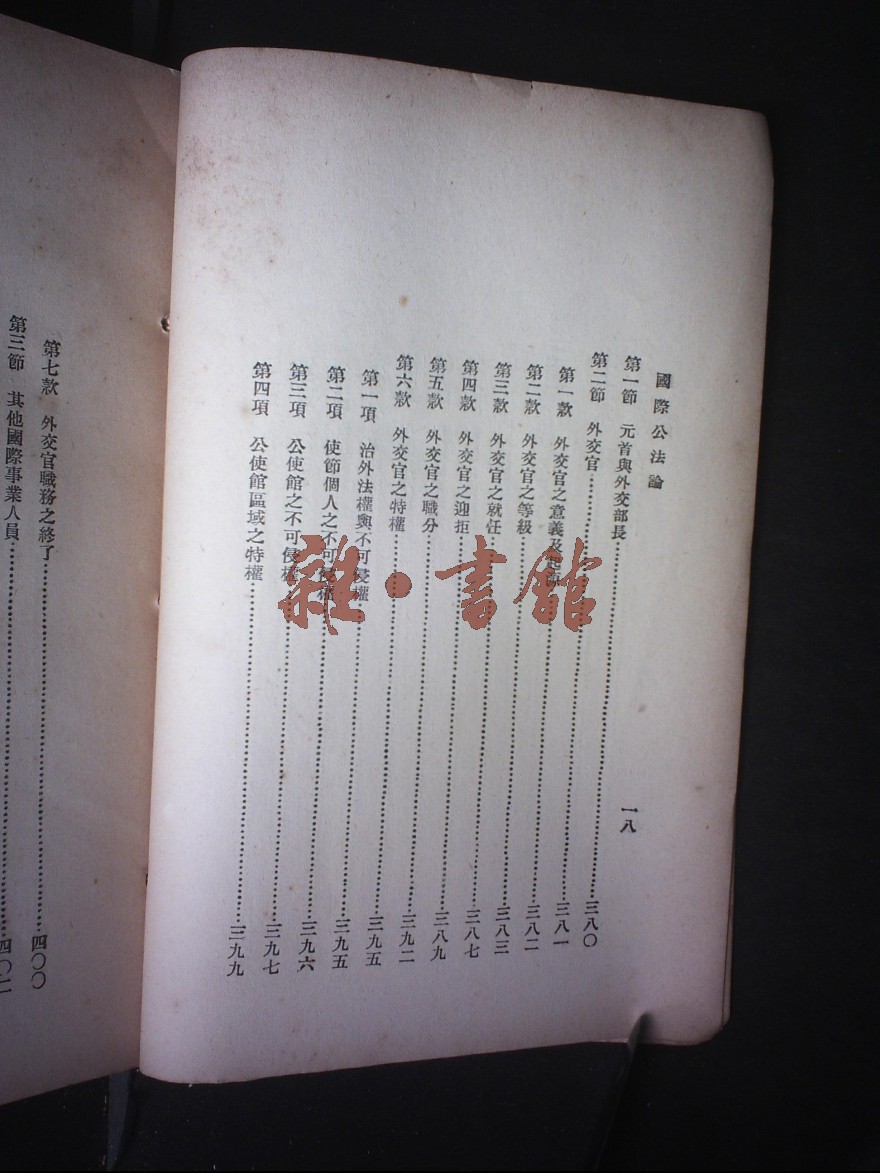 國際公法論
一八
第一節 元首與外交部長……三八〇
第二節 外交官……三八一
第一款 外交官之意義及起源……三八二
第二款 外交官之等級……三八三
第三款 外交官之就任……三八七
第四款 外交官之迎拒……三八九
第五款 外交官之職分……三九二
第六款 外交官之特權……三九五
第一項 治外法權與不可侵權……三九五
第二項 使節個人之不可侵權……三九六
第三項 公使館之不可侵權……三九七
第四項 公使館區域之特權……三九九
第七款 外交官職務之終了……四〇〇
第三節 其他國際事業人員……四〇二
雜·書館